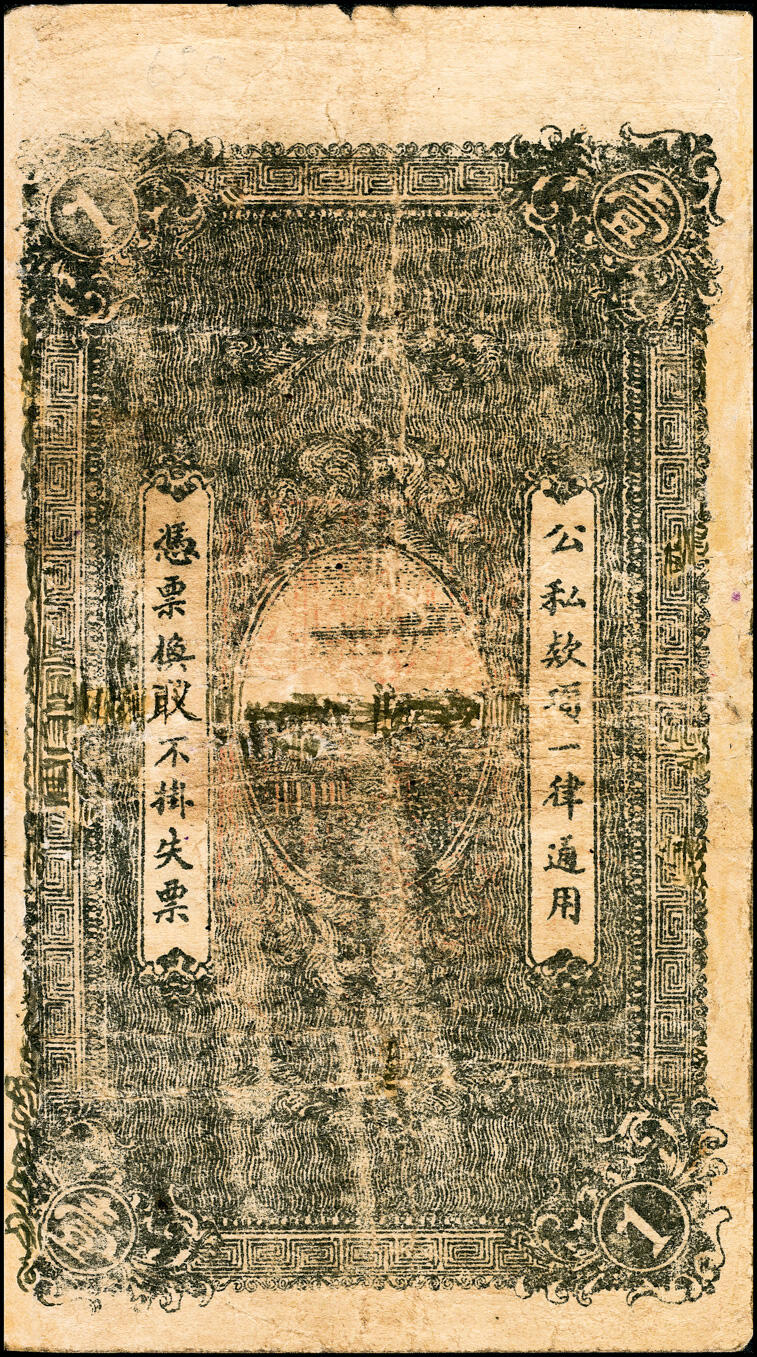 壹
1
公私欵項一律通用
憑票換取不掛失票
1